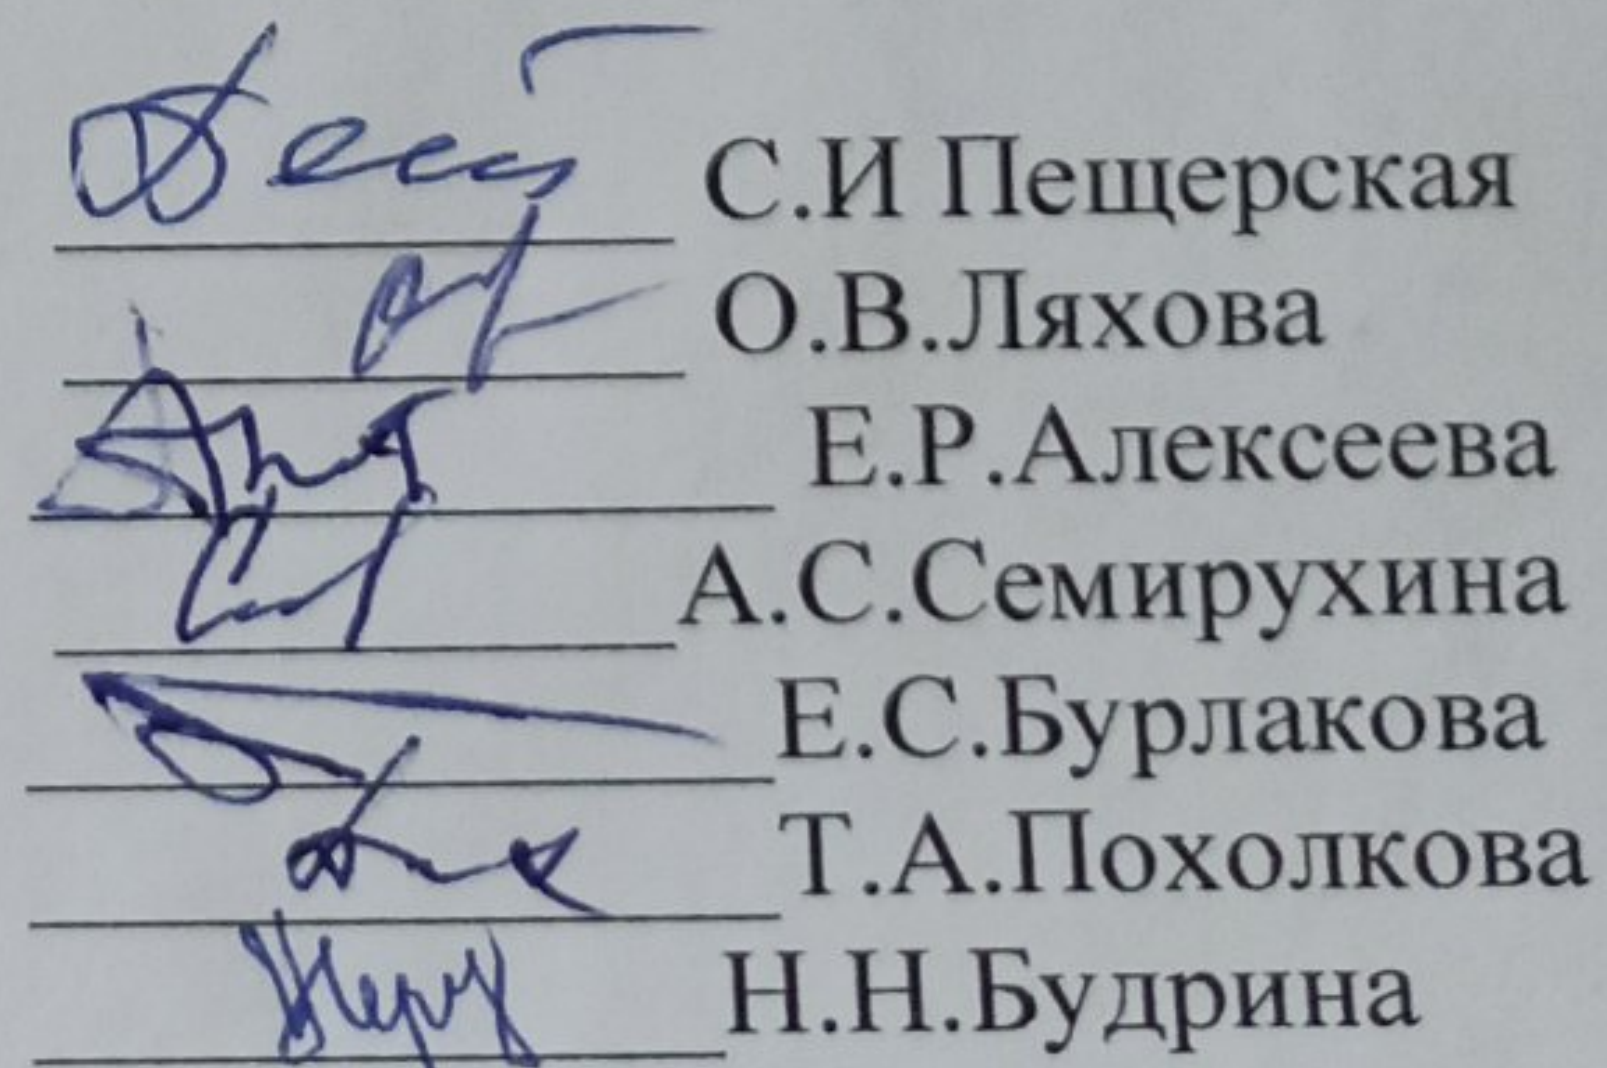 С.И Пещерская
О.В.Ляхова
Е.Р.Алексеева
А.С.Семирухина
Е.С.Бурлакова
Т.А.Похолкова
Н.Н.Будрина